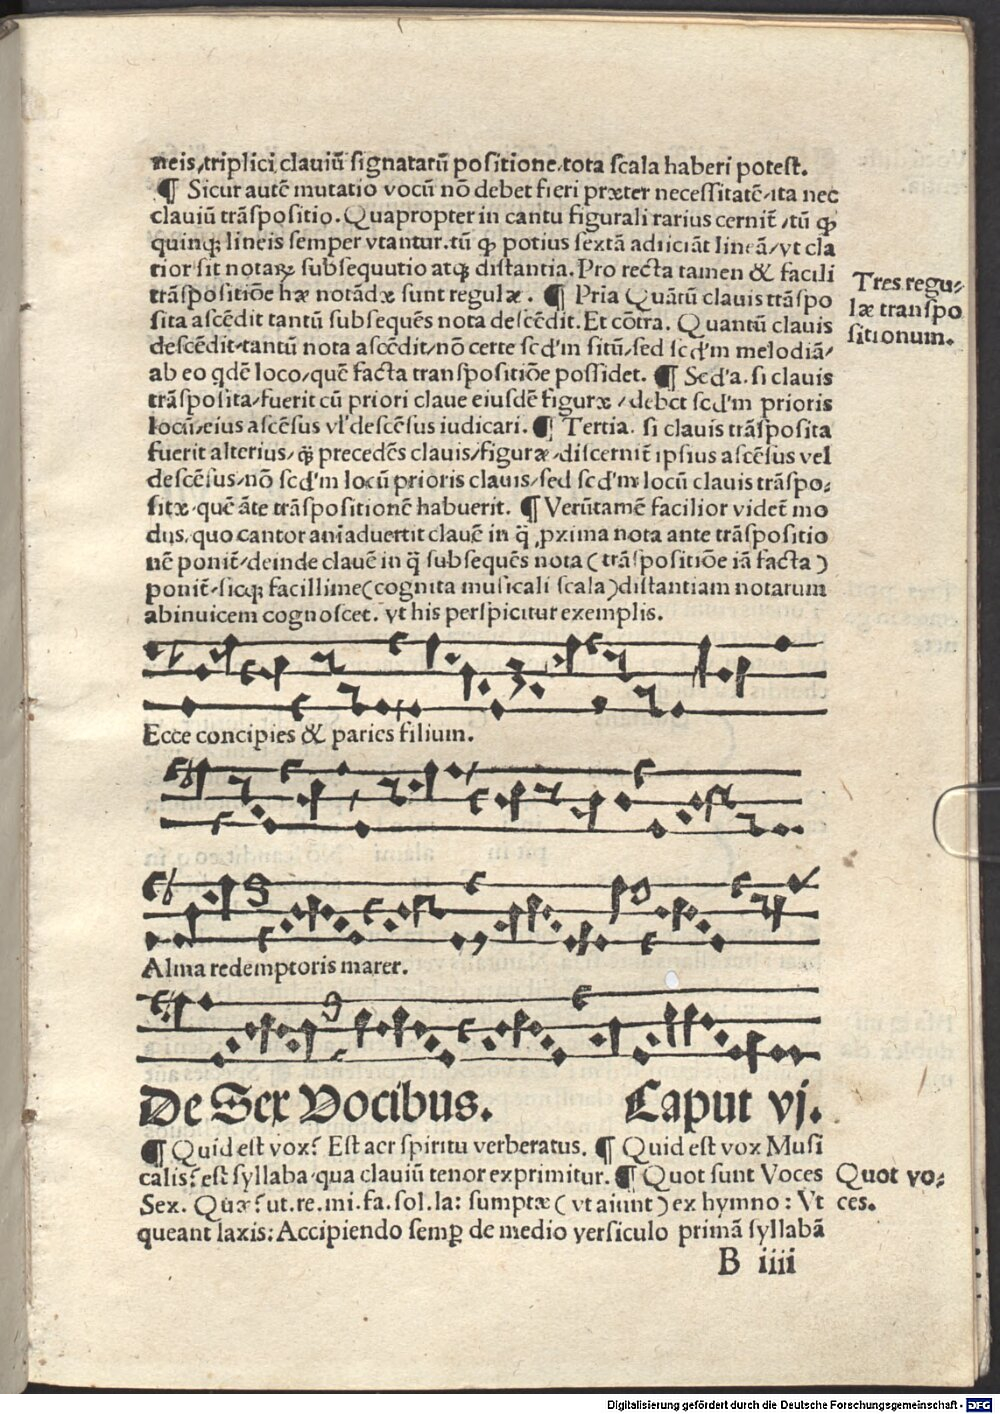 neis, triplici clauiū signatarū positione, tota scala haberi potest.
¶ Sicut autē mutatio vocū nō debet fieri præter necessitatē, ita nec
clauiū trāspositio. Quapropter in cantu figurali rarius cernit᷑, tū ꝙ
quinqꝫ lineis semper vtantur. tū ꝙ potius sextā adiiciāt lineā, vt cla
rior sit notaꝝ subsequutio atqꝫ distantia. Pro recta tamen & facili
trāspositiōe hæ notādæ sunt regulæ. ¶ Pria Quātū clauis trāspo
sita ascēdit tantū subsequēs nota descēdit. Et cōtra. Quantū clauis
descēdit, tantū nota ascēdit, nō certe scd'm sitū, sed scd'm melodiā,
ab eo qdē loco, quē facta transpositiōe possidet. ¶ Sed'a. si clauis
trāsposita, fuerit cū priori claue eiusdē figuræ, debet scd'm prioris
locū, eius ascēsus vl' descēsus iudicari. ¶ Tertia. si clauis trāsposita
fuerit alterius, q̄ꝫ precedēs clauis, figuræ, discernit᷑ ipsius ascēsus vel
descēsus, nō scd'm locū prioris clauis, sed scd'm locū clauis trāspo⸗
sitæ, quē āte trāspositionē habuerit. ¶ Verūtamē facilior videt᷑ mo
dus, quo cantor aniaduertit clauē in q̄ ꝓxima nota ante trāspositio
nē ponit᷑, deinde clauē in q̄ subsequēs nota (trāspositiōe iā facta)
ponit᷑, sicqꝫ facillime (cognita musicali scala) distantiam notarum
abinuicem cognoscet. vt his perspicitur exemplis.
Tres regu⸗
læ transpo
sitionum.
Ecce concipies & paries filium.
Alma redemptoris mater.
De Sex Vocibus. Caput vj.
¶ Quid est vox? Est aer spiritu verberatus. ¶ Quid est vox Musi
calis? est syllaba, qua clauiū tenor exprimitur. ¶ Quot sunt Voces
Sex. Quæ? ut. re. mi. fa. sol. la: sumptæ (vt aiunt) ex hymno: Vt
queant laxis: Accipiendo semꝑ de medio versiculo primā syllabā
Quot vo⸗
ces.
B iiii
Digitalisierung gefördert durch die Deutsche Forschungsgemeinschaft - DFG